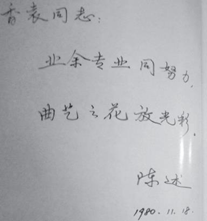 香袁同志：
业余专业同努力，
曲艺之花放光彩。
陈述
1980.11.18.